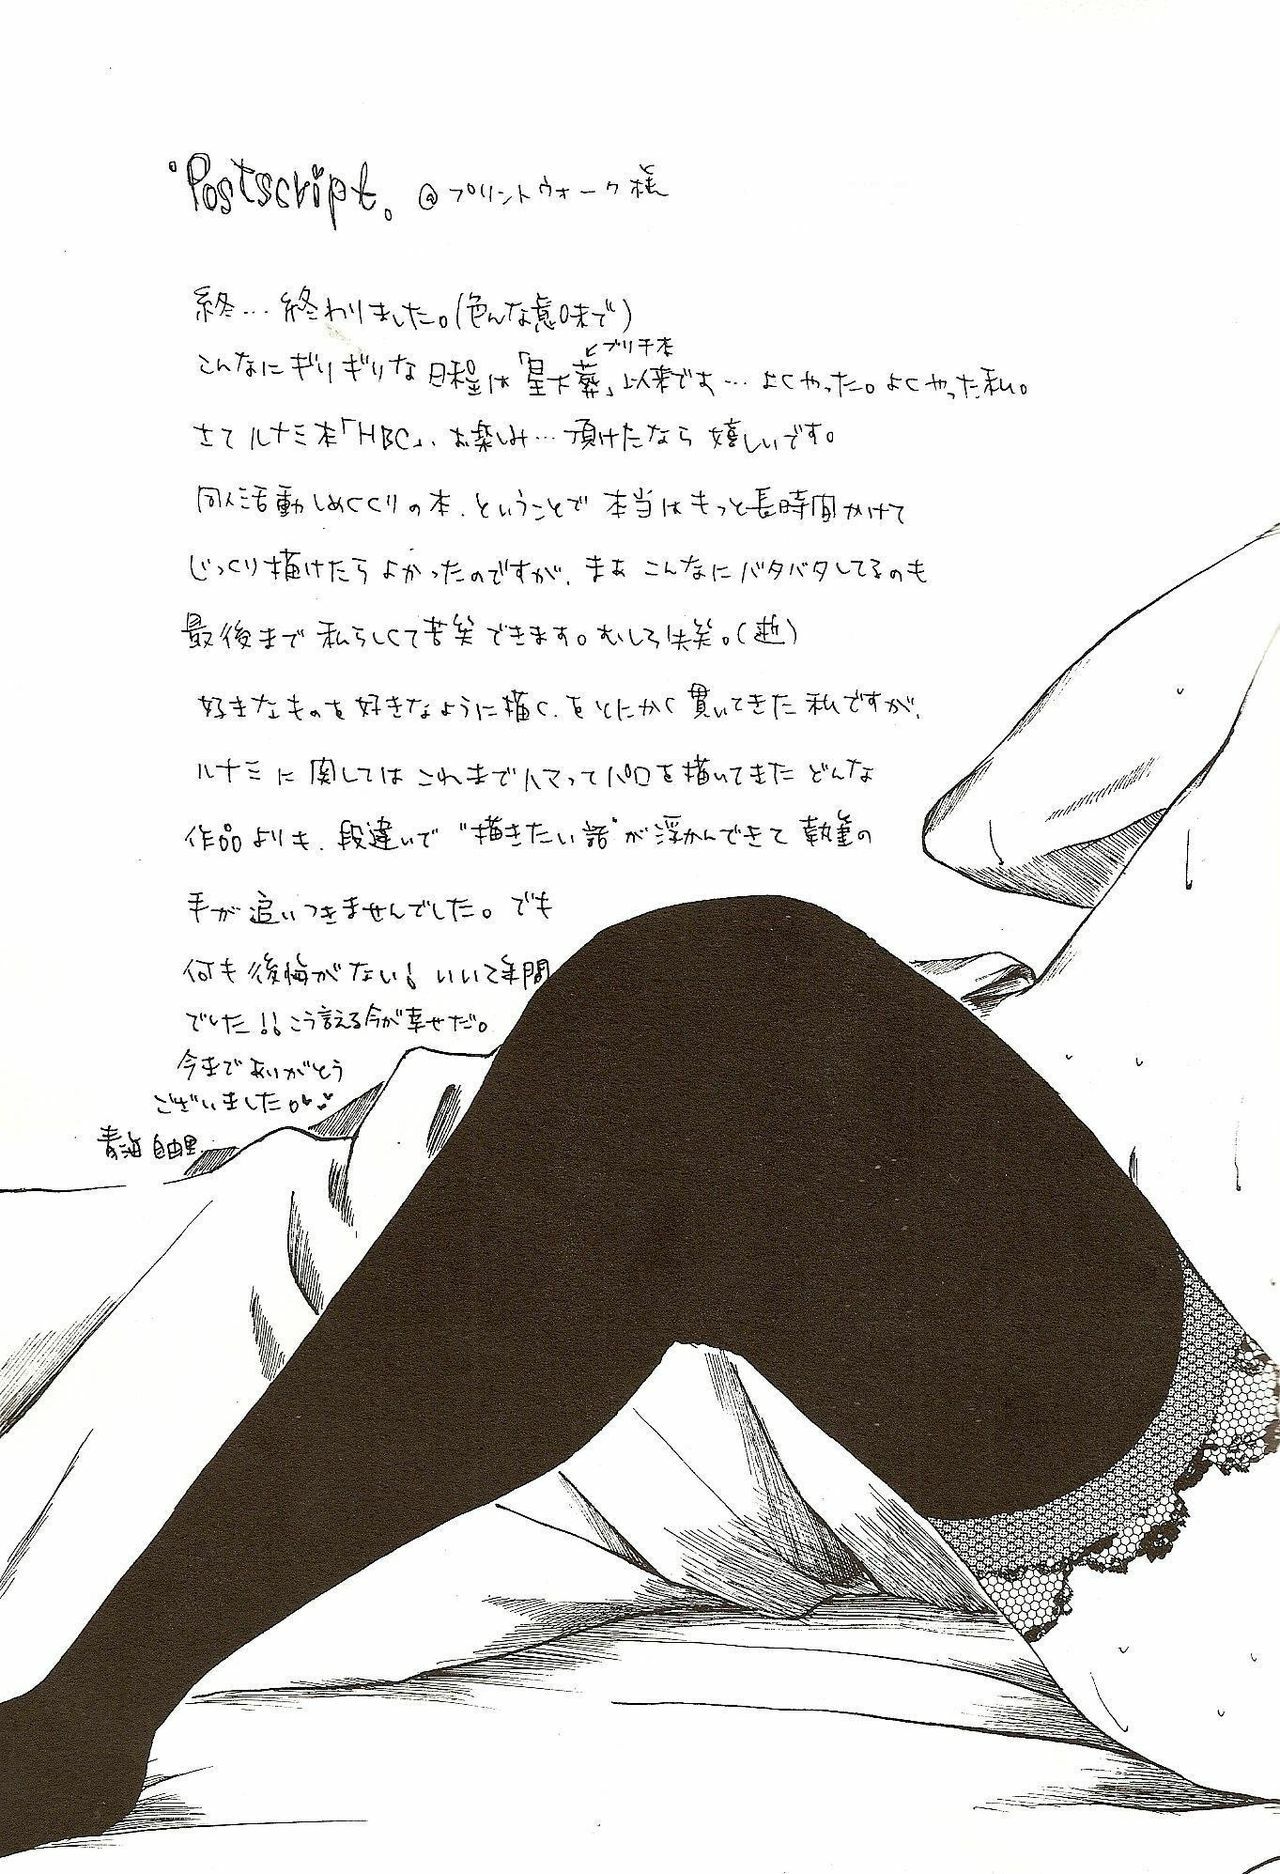 Postscript. @プリントウォーク様
終…終わりました。(色んな意味で)
↙ブリ千本
こんなにギリギリな日程は「星下葬」以来です…よくやった。よくやった私。
さてルナミ本「HBC」、お楽しみ…頂けたなら嬉しいです。
同人活動しめくくりの本、ということで本当はもっと長時間かけて
じっくり描けたらよかったのですが、まあこんなにバタバタしてるのも
最後まで私らしくて苦笑できます。むしろ失笑。(逝)
好きなものを好きなように描く、をとにかく貫いてきた私ですが、
ルナミに関してはこれまでハマってパロを描いてきたどんな
作品よりも、段違いで"描きたい話"が浮かんできて執筆の
手が追いつきませんでした。でも
何も後悔がない!いい年間
でした!!こう言える今が幸せだ。
今までありがとう
ございました。♥♥
青海自由里